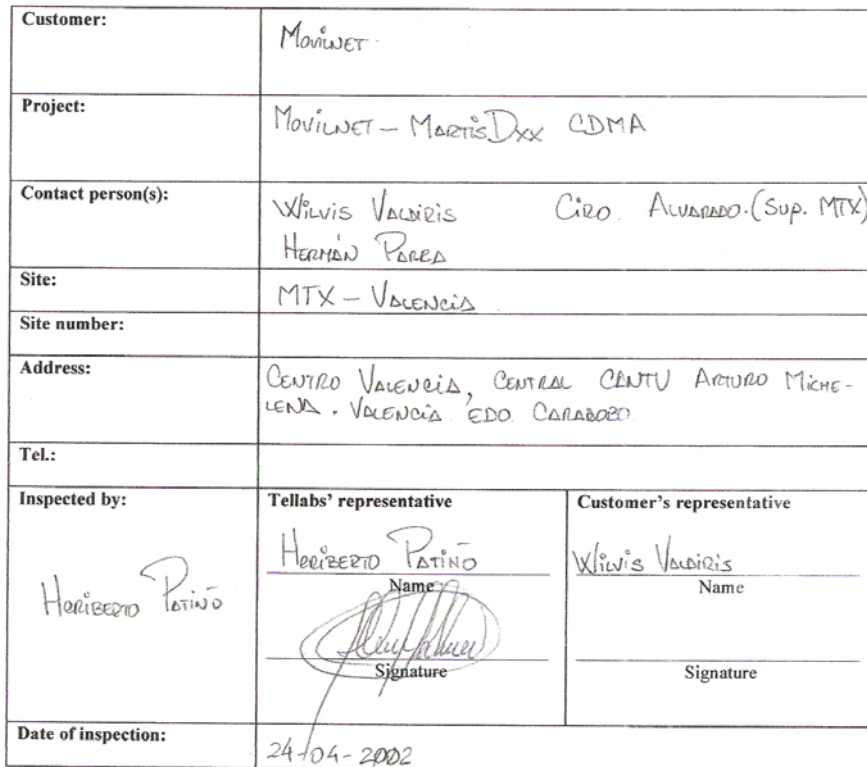 Customer: Movilnet.
Project: Movilnet - MartisDxx CDMA
Contact person(s): Wilvis Valdiris Ciro. Alvarado. (Sup. MTX)
Hermán Parra
Site: MTX - Valencia
Site number:
Address: Centro Valencia, Central CANTV Arturo Miche-
lena. Valencia EDO. Carabobo.
Tel.:
Inspected by: Tellabs' representative Customer's representative
Heriberto Patiño Heriberto Patiño Wilvis Valdiris
Name Name
Signature Signature
Date of inspection: 24-04-2002